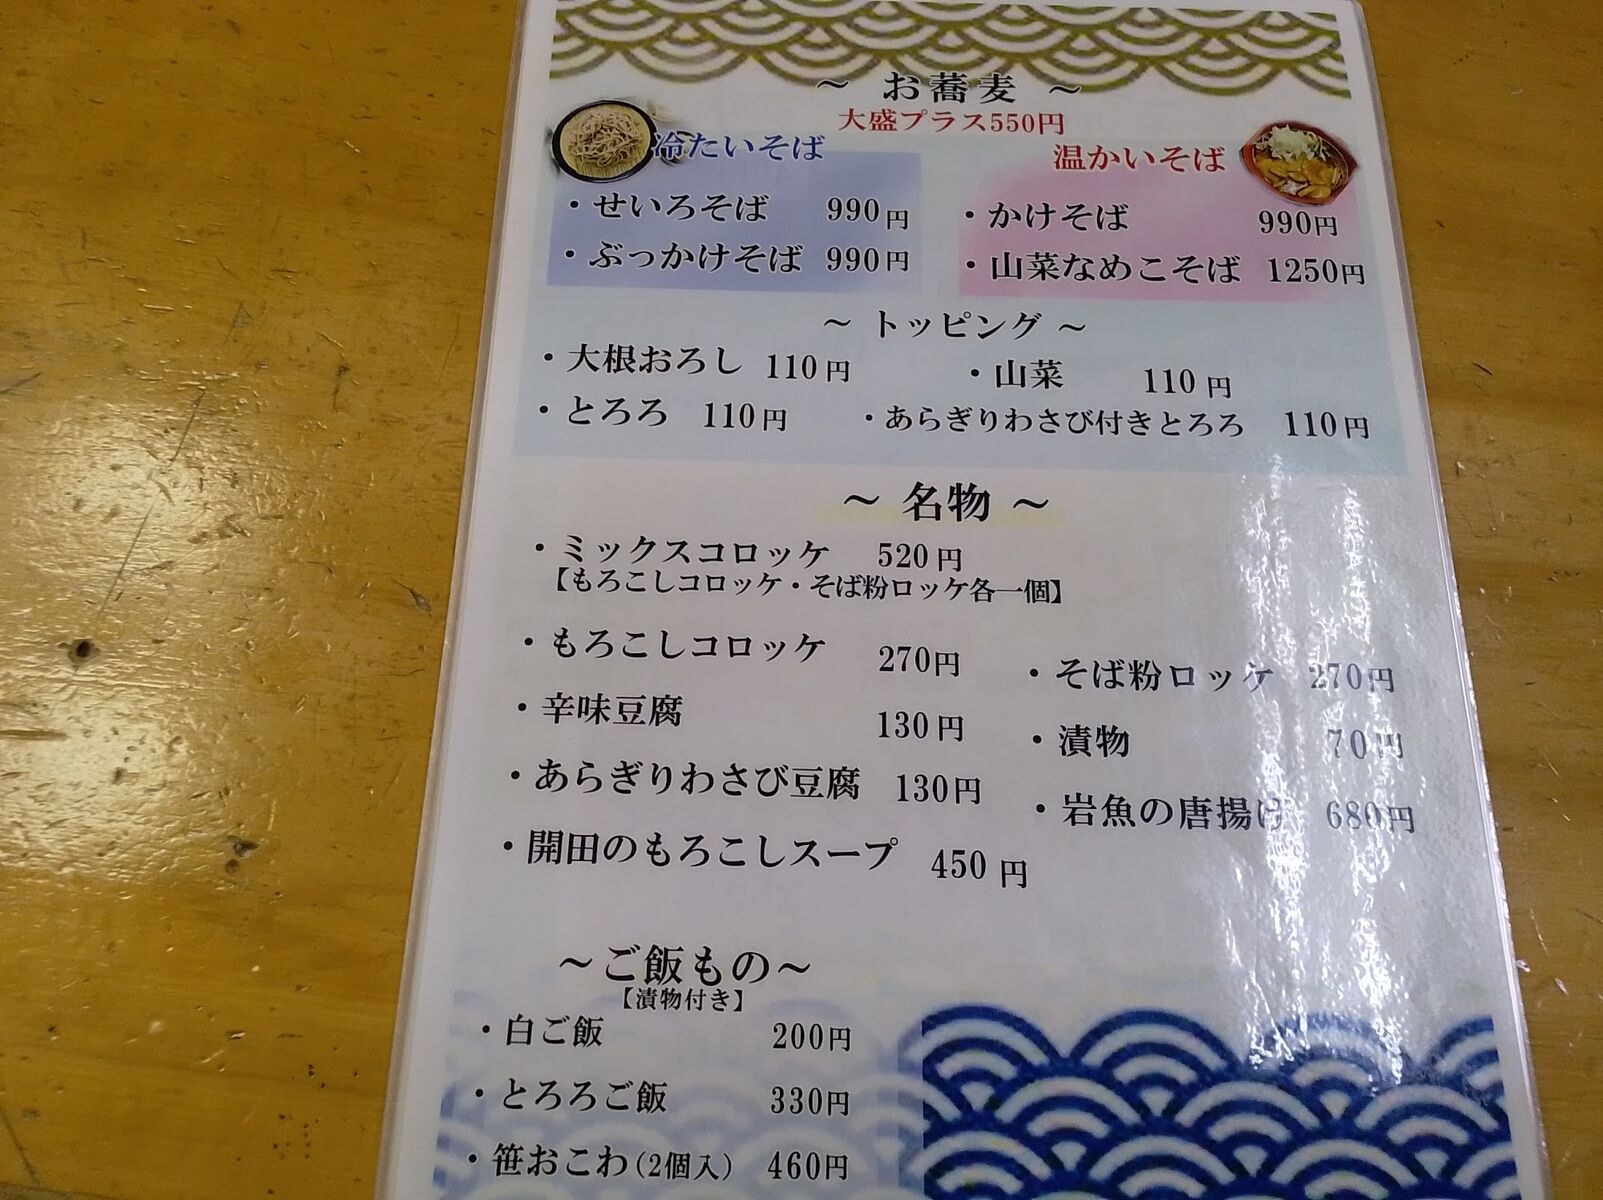 ～ お蕎麦 ～
大盛プラス550円
冷たいそば
・せいろそば 990円
・ぶっかけそば 990円
温かいそば
・かけそば 990円
・山菜なめこそば 1250円
～ トッピング ～
・大根おろし 110円 ・山菜 110円
・とろろ 110円 ・あらぎりわさび付きとろろ 110円
～ 名物 ～
・ミックスコロッケ 520円
【もろこしコロッケ・そば粉ロッケ各一個】
・もろこしコロッケ 270円 ・そば粉ロッケ 270円
・辛味豆腐 130円 ・漬物 70円
・あらぎりわさび豆腐 130円 ・岩魚の唐揚げ 680円
・開田のもろこしスープ 450円
～ご飯もの～
【漬物付き】
・白ご飯 200円
・とろろご飯 330円
・笹おこわ(2個入) 460円